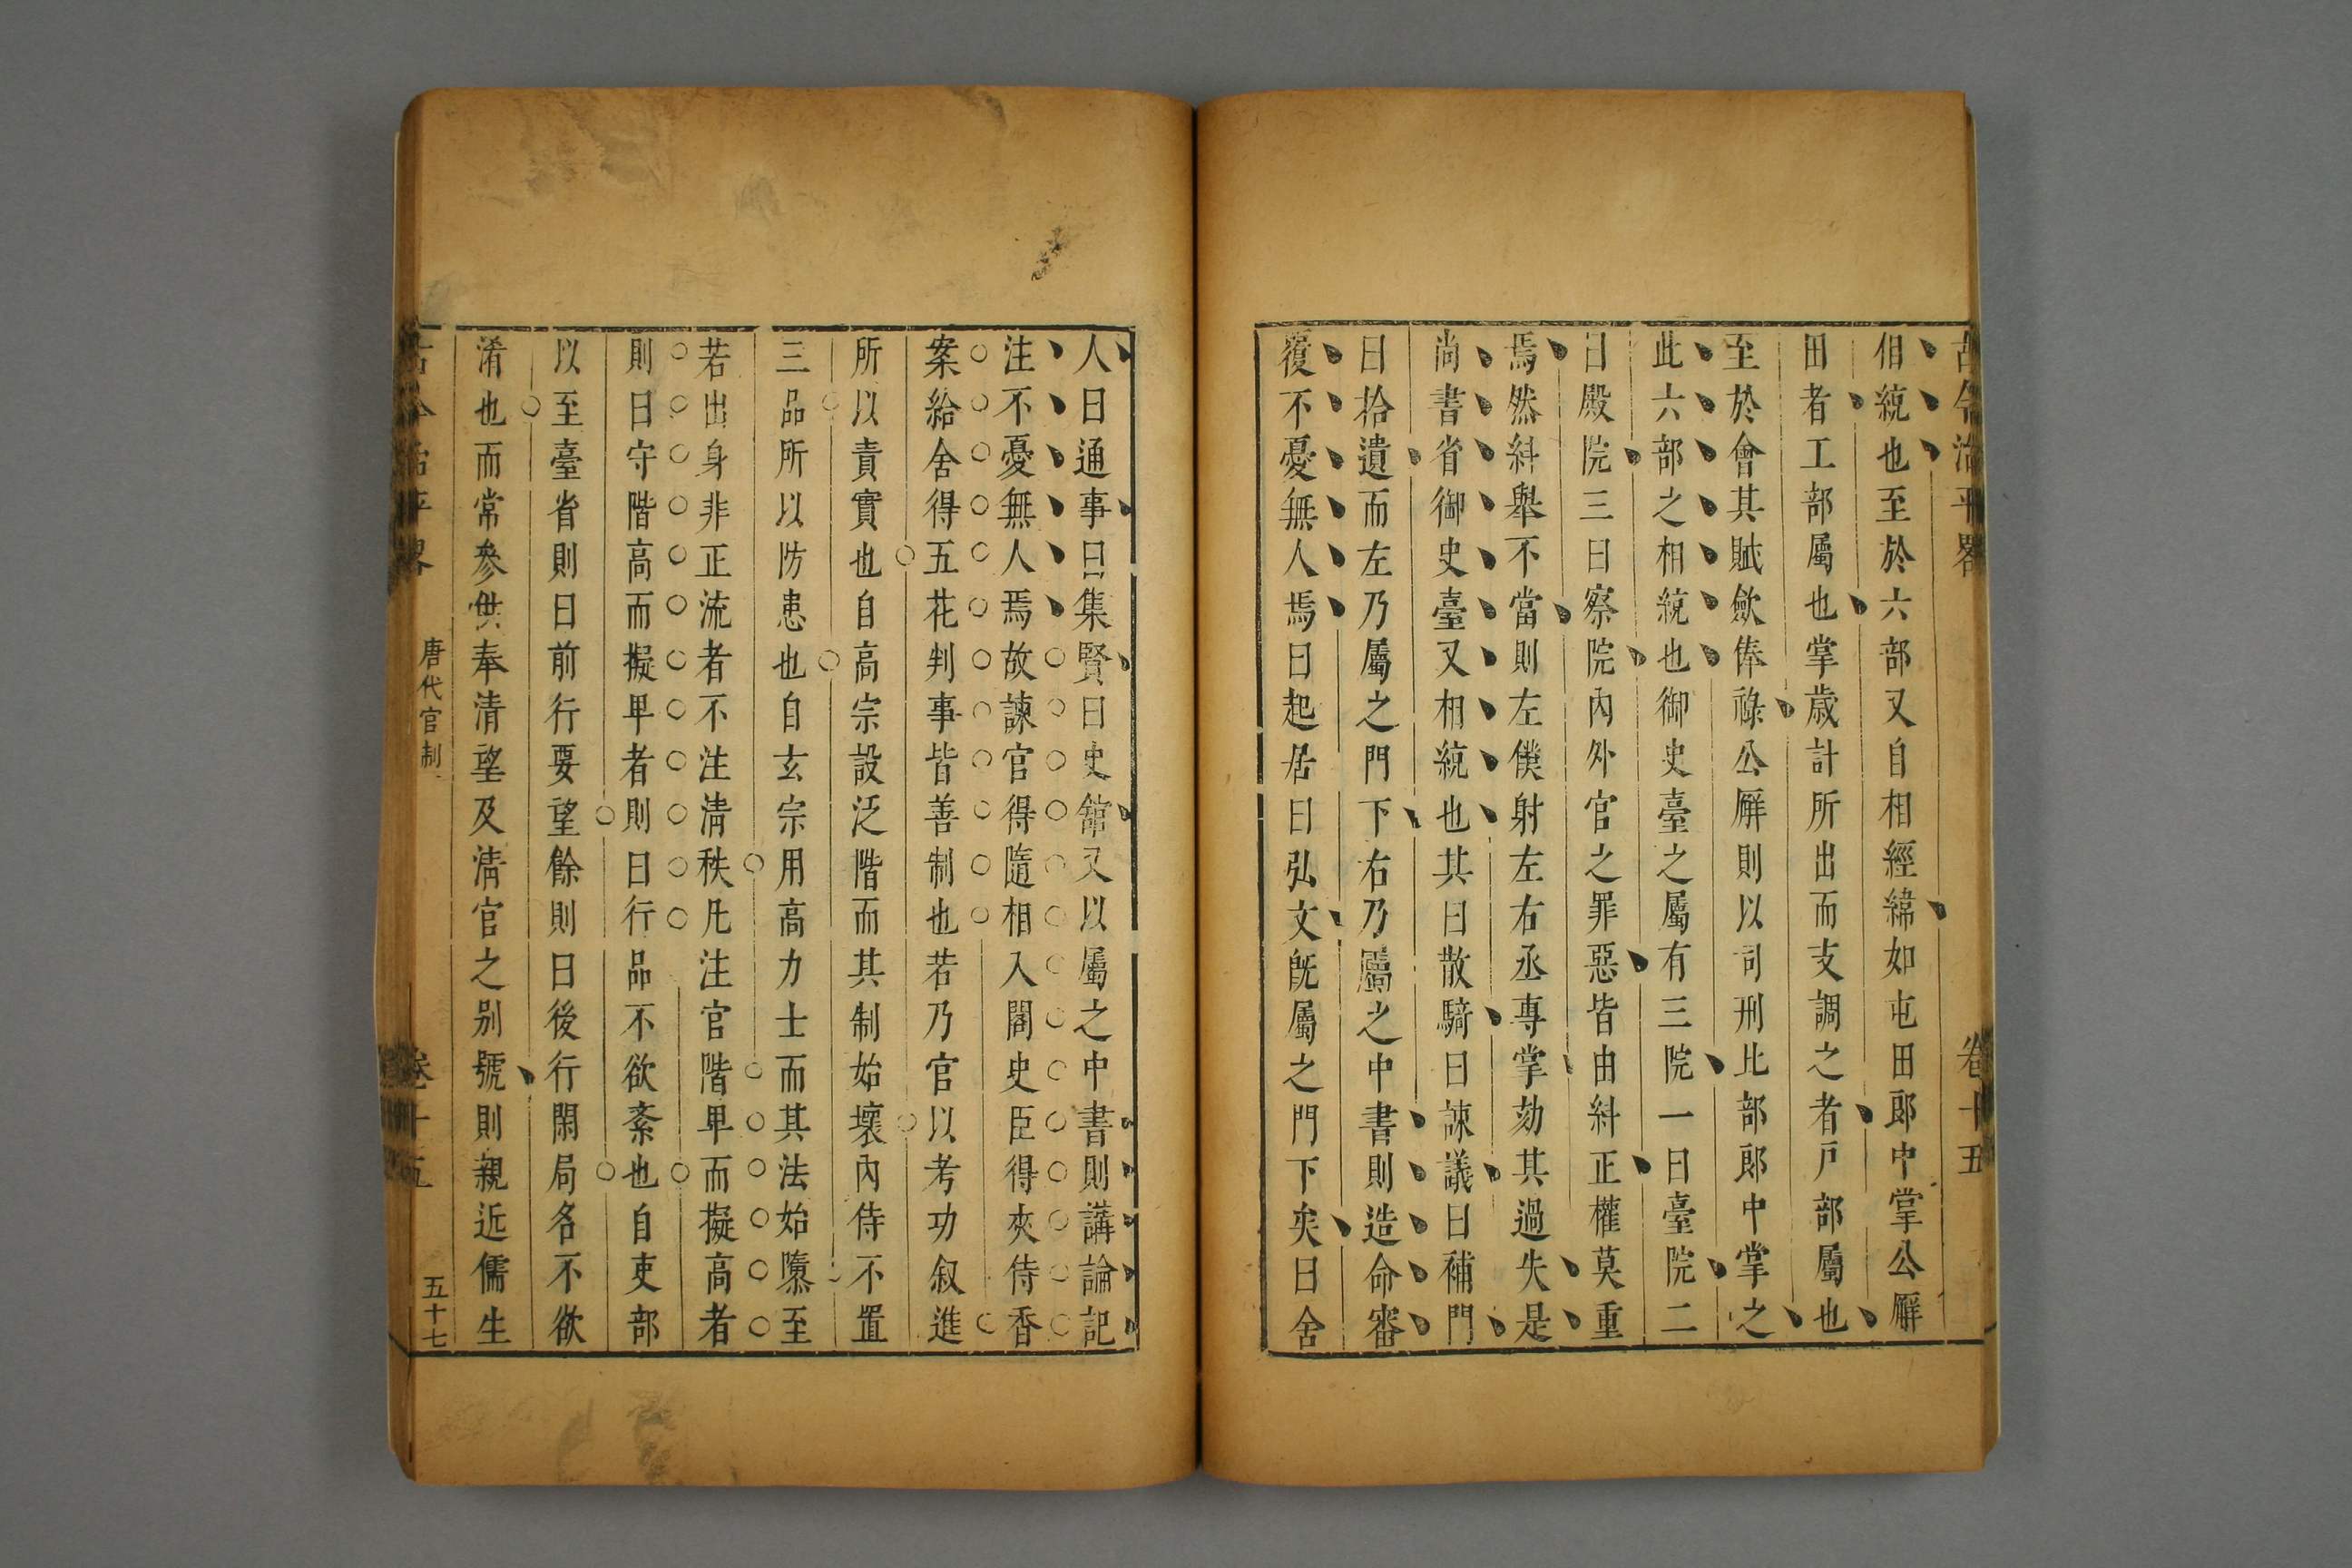 古今治平畧 卷十五
相統也至於六部又自相經緯如屯田郎中掌公廨
田者工部屬也掌歲計所出而支調之者戶部屬也
至於會其賦斂俸祿公廨則以司刑比部郎中掌之
此六部之相統也御史臺之屬有三院一曰臺院二
曰殿院三曰察院內外官之罪惡皆由糾正權莫重
焉然糾舉不當則左僕射左右丞專掌劾其過失是
尚書省御史臺又相統也其曰散騎曰諫議曰補門
曰拾遺而左乃屬之門下右乃屬之中書則造命審
覆不憂無人焉曰起居曰弘文既屬之門下矣曰舍
人曰通事曰集賢曰史館又以屬之中書則講論記
注不憂無人焉故諫官得隨相入閣史臣得夾侍香
案給舍得五花判事皆善制也若乃官以考功叙進
所以責實也自高宗設泛階而其制始壞內侍不置
三品所以防患也自玄宗用高力士而其法始隳至
若出身非正流者不注清秩凡注官階卑而擬高者
則曰守階高而擬卑者則曰行品不欲紊也自吏部
以至臺省則曰前行要望餘則曰後行閑局名不欲
淆也而常參供奉清望及清官之別號則親近儒生
古今治平畧 唐代官制 卷十五 五十七